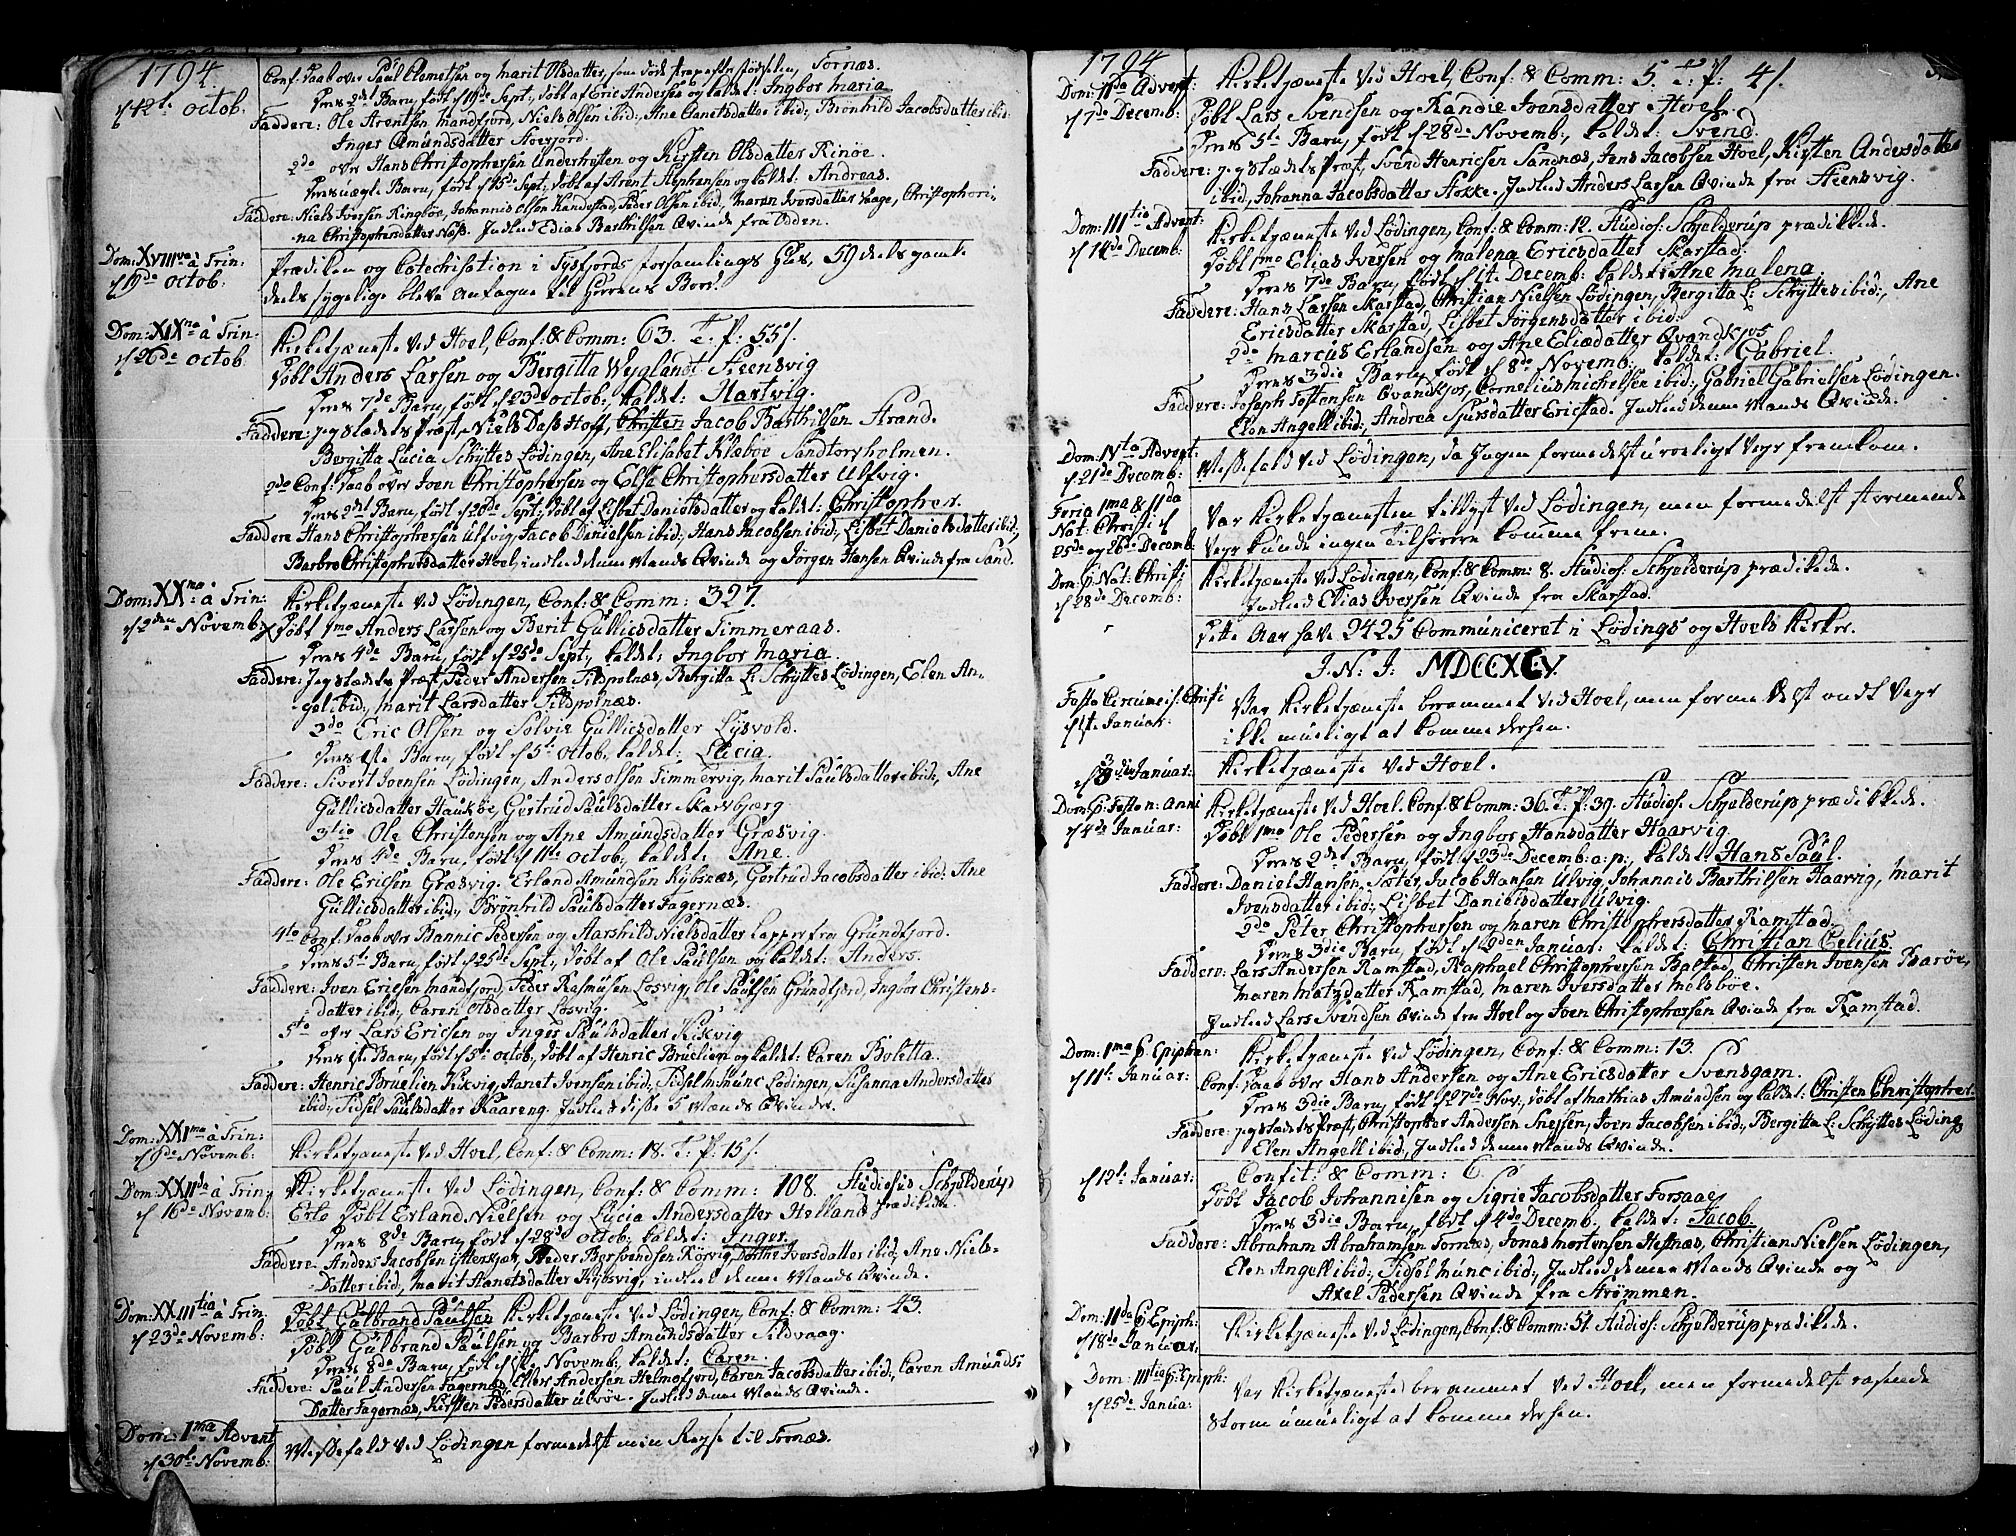 1794
d 12te Octob:
Conf: daab over Paul Clemetsen og Marit Olsdatter, Tornæs.
Deres 2det Barn, født d 19de Sept:, døbt af Eric Andersen og kaldet: Ingbor Maria
Faddere: Ole Arentsen Mandfjord, Niels Olsen ibid:, Ane Hanetsdatter ibid:, Brönhild Jacobsdatter ibid:
Inger Amúndsdatter
2do over Hans Christophersen og Kirsten Olsdatter Rinöe.
Barn, født d 15de Sept:, døbt af Arent Stephensen og kaldet: Andreas.
Faddere: Niels Iversen Ringböe, Johannis Olsen Kandestad, Peder Olsen ibid:, Maren Iversdatter Vaage, Christophori-
na Christophersdatter Næss. Indled Edias Barthilsen Qvinde fra Odden.
Dom: XVIIIva à Trin:
d 19de Octob:
Prædiken og Catechisation i Tysfjords forsamlings Hus, 59 deels gamle
deels sygelige bleve antagne til Herrens Bord.
Dom: XIXna à Trin:
d 26de Octob:
Kirketjæneste ved Hoel, Conf: & Comm: 63. T. P: 55 s.
Døbt Anders Larsen og Bergitta Weyglandt Steensvig
Deres 7de Barn, født d 23de Octob:, kaldet: Hartvig.
Faddere: jeg stædets Præst, Niels Dass Hoff, Christen Jacob Barthilsen Strand.
Bergitta Lucia Schyttes Lödingen, Ane Elisabet Klæboe Sandtorvholmen.
2do Conf: daab over Joen Christophersen og Else Christophersdatter Ulfvig.
Deres 2det Barn, født d 20de Sept:, døbt af Lisbet Danielsdatter og kaldet: Christopher.
Faddere Hans Christophersen Ulfvig, Jacob Danielsen ibid:, Hans Jacobsen ibid:, Lisbet Danielsdatter ibid:,
Barbro Christophersdatter Hoel, indled denne Mands Qvinde og Jörgen Hansen Qvinde fra Sand.
Dom: XXma à Trin:
d 2den Novemb:
Kirketjæneste ved Lödingen, Conf: & Comm: 327.
Døbt 1mo Anders Larsen og Berit Gúllicsdatter Timmeraas.
Deres 4de Barn, født d 25de Sept:, kaldet: Ingbor Maria.
Faddere: Jeg stædets Præst, Peder Andersen Sildpolnæs, Bergitta L: Schyttes Lödingen, Elen An-
gel ibid:, Marit Larsdatter Sildpolnæs.
2do Eric Olsen og Solvie Gúllicsdatter Lysvold.
Deres 1ste Barn, født d 5te Octob:, kaldet: Lucia.
Faddere: Sivert Joensen Lödingen, Anders Olsen Timmervig, Marit Paulsdatter ibid:, Ane
Gúllicsdatter Haukøe, Gertrud Paulsdatter Skarvbjerg
3tio Ole Christensen og Ane Amúndsdatter Græsvig.
Deres 4de Barn, født d 11te Octob:, kaldet: Ane.
Faddere: Ole Ericsen Græsvig. Erland Amúndsen Kybsnæs, Gertrud Jacobsdatter ibid:, Ane
Gúllicsdatter ibid:, Brönhild Paulsdatter Fagernæs.
4to Conf: daab over Bannic Pedersen og Aarshild Nielsdatter Lapper fra Grúndfjord.
Deres 5te Barn, født d 25de Sept:, døbt af Ole Paulsen og kaldet: Anders.
Faddere: Iven Ericsen Mandfjord, Peder Rasmúsen Losvig, Ole Paulsen Grúndfjord, Ingbor Christens-
datter ibid:, Caren Olsdatter Losvig.
5to over Lars Ericsen og Inger Paulsdatter Kikvig
Deres 1ste Barn, født d 5te Octob:, døbt af Henric Brúelien og kaldet: Caren Boletta.
Faddere: Henric Brúelien Kikvig, Hanet Ivensen ibid:, Sidsel Múnc Lödingen, Susanna Andersdatter
ibid:, Sidsel Paulsdatter Kaareng. Indled disse 5 Mænds Qvinder.
Dom: XXIma à Trin:
d 9de Novemb:
Kirketjæneste ved Hoel, Conf: & Comm: 18. T. P: 15 s.
Dom: XXIIda à Trin:
d 16de Novemb:
Kirketjæneste ved Lödingen, Conf: & Comm: 108. Studiosus Schjelderúp
prædikede.
Døbt Erland Nielsen og Lucia Andersdatter Holland
Deres 8de Barn, født d 28de Octob:, kaldet: Inger.
Faddere: Anders Jacobsen Ytterskjær, Peder Bersvendsen Körvig, Dorthe Iversdatter ibid:, Ane Niels-
datter ibid:, Marit Hanetsdatter Kybsvig, indled denne Mands Qvinde.
Dom: XXIIItia à Trin:
d 23de Novemb:
Døbt Gúlbrand Paulsen Kirketjæneste ved Lödingen, Conf: & Comm: 43.
Døbt Gúlbrand Paulsen og Barbro Amúndsdatter Sildvaag.
Deres 8de Barn, født d 1ste Novemb:, kaldet: Caren.
Faddere: Paul Andersen Fagernæs, Elias Andersen Helmofjord, Caren Jacobsdatter ibid:, Caren Amúnds-
datter Fagernæs, Kirsten Pedersdatter Ulvöe. Indled denne Mands Qvinde.
Dom: 1ma Advent
d 30te Novemb:
Messefald ved Lödingen formedelst min Reyse til Tornæs.
1794
Dom: IIda Advent:
d 7de Decemb:
Kirketjæneste ved Hoel, Conf: & Comm: 5. T. P: 4 s.
Døbt Lars Svendsen og Randie Ivensdatter Hoel.
Deres 5te Barn, født d 28de Novemb:, kaldet: Svend.
Faddere: jeg stædets Præst, Svend Henricsen Sandnæs, Jens Jacobsen Hoel, Kirsten Andersdatter
ibid, Johanna Jacobsdatter Stokke. Indled Anders Larsen Qvinde fra Steensvig.
Dom: IIItia Advent:
d 14de Decemb:
Kirketjæneste ved Lödingen, Conf: & Comm: 12. Studios: Schjelderúp prædikkede.
Døbt 1mo Elias Iversen og Malena Ericsdatter Skarstad.
Deres 7de Barn, født d 1ste Decemb: kaldet: Ane Malena.
Faddere: Hans Larsen Skarstad, Christian Nielsen Lödingen, Bergitta L: Schyttes ibid:, Ane
Ericsdatter Skarstad, Lisbet Jörgensdatter ibid:
2do Marcus Erlandsen og Ane Eliædatter Qvandkjos
Deres 3die Barn, født d 8de Novemb:, kaldet: Gabriel.
Faddere: Joseph Tostensen Qvandkjos, Cornelius Michelsen ibid:, Gabriel Gabrielsen Lödingen.
Elen Angell ibid:, Andrea Sjursdatter Ericstad. Indled denne Mands Qvinde.
Dom: IVta Advent:
d 21de Decemb:
Messefald ved Lödingen, da Ingen formedelst uroeligt Veyr fremkom.
Feria 1ma & IIda
Nat: Christi d
25de og 26de Decemb:
Var Kirketjænesten tillyst ved Lödingen, men formedelst stormende
Veyr kunde ingen Tilhörere komme frem.
Dom: p: Nat: Christi
d 28de Decemb:
Kirketjæneste ved Lödingen, Conf: & Comm: 8. Studios: Schjelderúp prædikede.
Indled Elias Iversen Qvinde fra Skarstad.
Dette Aar have 2425 Communiceret i Lödings og Hoels Kirker.
I. N. J: MDCCXCV.
Festo Circumcis: Christi
d 1ste Januar:
Var Kirketjæneste berammet ved Hoel, men formedelst ondt Veyr
ikke mueligt at komme dersen.
d 3die Januar:
Kirketjæneste ved Hoel.
Dom: p: Fest: n: anni
d 4de Januar:
Kirketjæneste ved Hoel. Conf: & Comm: 36. T. P: 39. Studios: Schjelderúp prædikkede.
Døbt 1mo Ole Pedersen og Ingbor Hansdatter Haarvig.
Deres 2det Barn, født d 23de Decemb: a: p:, kaldet: Hans Paul.
Faddere: Daniel Hansen Sæter, Jacob Hansen Ulvig, Johannis Barthilsen Haarvig, Marit
Ivensdatter ibid:, Lisbet Danielsdatter Ulvig.
2do Peter Christophersen og Maren Christophersdatter Ramstad.
Deres 3die Barn, født d 2den Januar: kaldet: Christian Celius.
Faddere: Lars Andersen Ramstad, Raphael Christophersen Balstad, Christen Ivensen Baröe,
Maren Matzdatter Ramstad, Maren Iversdatter Melsböe.
Indled Lars Svendsen Qvinde fra Hoel og Joen Christophersen Qvinde fra Ramstad.
Dom: 1ma p: Epiphan:
d 11te Januar:
Kirketjæneste ved Lödingen, Conf: & Comm: 13.
Conf: daab over Hans Andersen og Ane Ericsdatter Svensgam.
Deres 3die Barn, født d 27de Nov:, døbt af Mathias Amúndsen og kaldet: Christen Christopher.
Faddere: jeg stædets Præst, Christopher Andersen Snejsen, Joen Jacobsen ibid:, Bergitta L: Schyttes Löding,
Elen Angell ibid:, Indled denne Mands Qvinde.
d 12te Januar:
Confit: & Comm: 6.
Døbt Jacob Johannisen og Sigrie Jacobsdatter Forsaae,
Deres 3die Barn, født d 4de Decemb:, kaldet: Jacob.
Faddere: Abraham Abrahamsen Tornæs, Jonas Mortensen Hestnæs, Christian Nielsen Lödingen,
Elen Angell ibid:, Sidsel Múnc ibid:, Indled denne Mands Qvinde og
Axel Pedersen Qvinde fra Strömmen.
Dom: IIda p: Epiph:
d 18de Januar:
Kirketjæneste ved Lödingen, Conf: & Comm: 51. Studios: Schjelderúp prædikede.
Dom: IIItia p: Epiph:
d 25de Janúa:
Var Kirketjæneste berammet ved Hoel, men formedelst rasende
Storm umueligt at komme dersen.